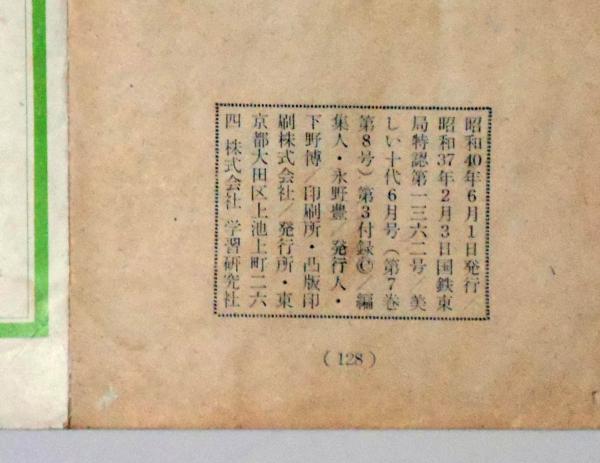 昭和40年6月1日発行／
昭和37年2月3日国鉄東
局特認第一三六二号／美
しい十代6月号（第7巻
第8号）第3付録©／編
集人・永野豊／発行人・
下野博／印刷所・凸版印
刷株式会社／発行所・東
京都大田区上池上町二六
四 株式会社 学習研究社
(128)